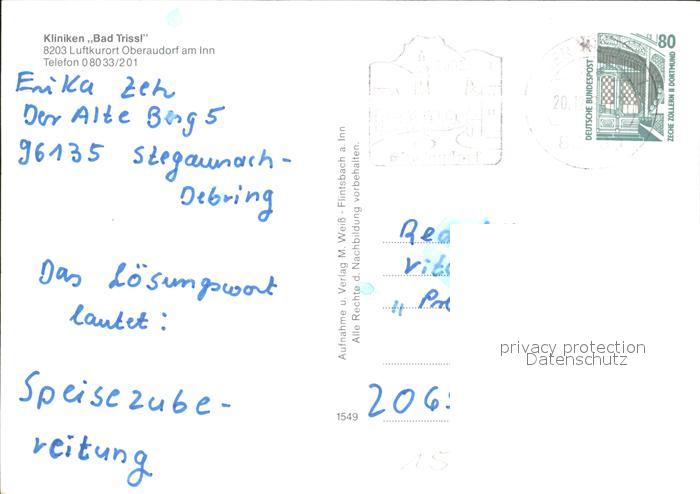 Kliniken „Bad Trissl"
8203 Luftkurort Oberaudorf am Inn
Telefon 0 80 33/2 01
Erika Zeh
Der Alte Berg 5
96135 Stegaurach-
Debring
Das Lösungswort
lautet:
Speisezube-
reitung
Aufnahme u. Verlag M. Weiß - Flintsbach a. Inn
Alle Rechte d. Nachbildung vorbehalten.
1549
80
DEUTSCHE BUNDESPOST
ZECHE ZOLLERN II DORTMUND
20.
Red
Vita
„ Pr
206
15
privacy protection
Datenschutz